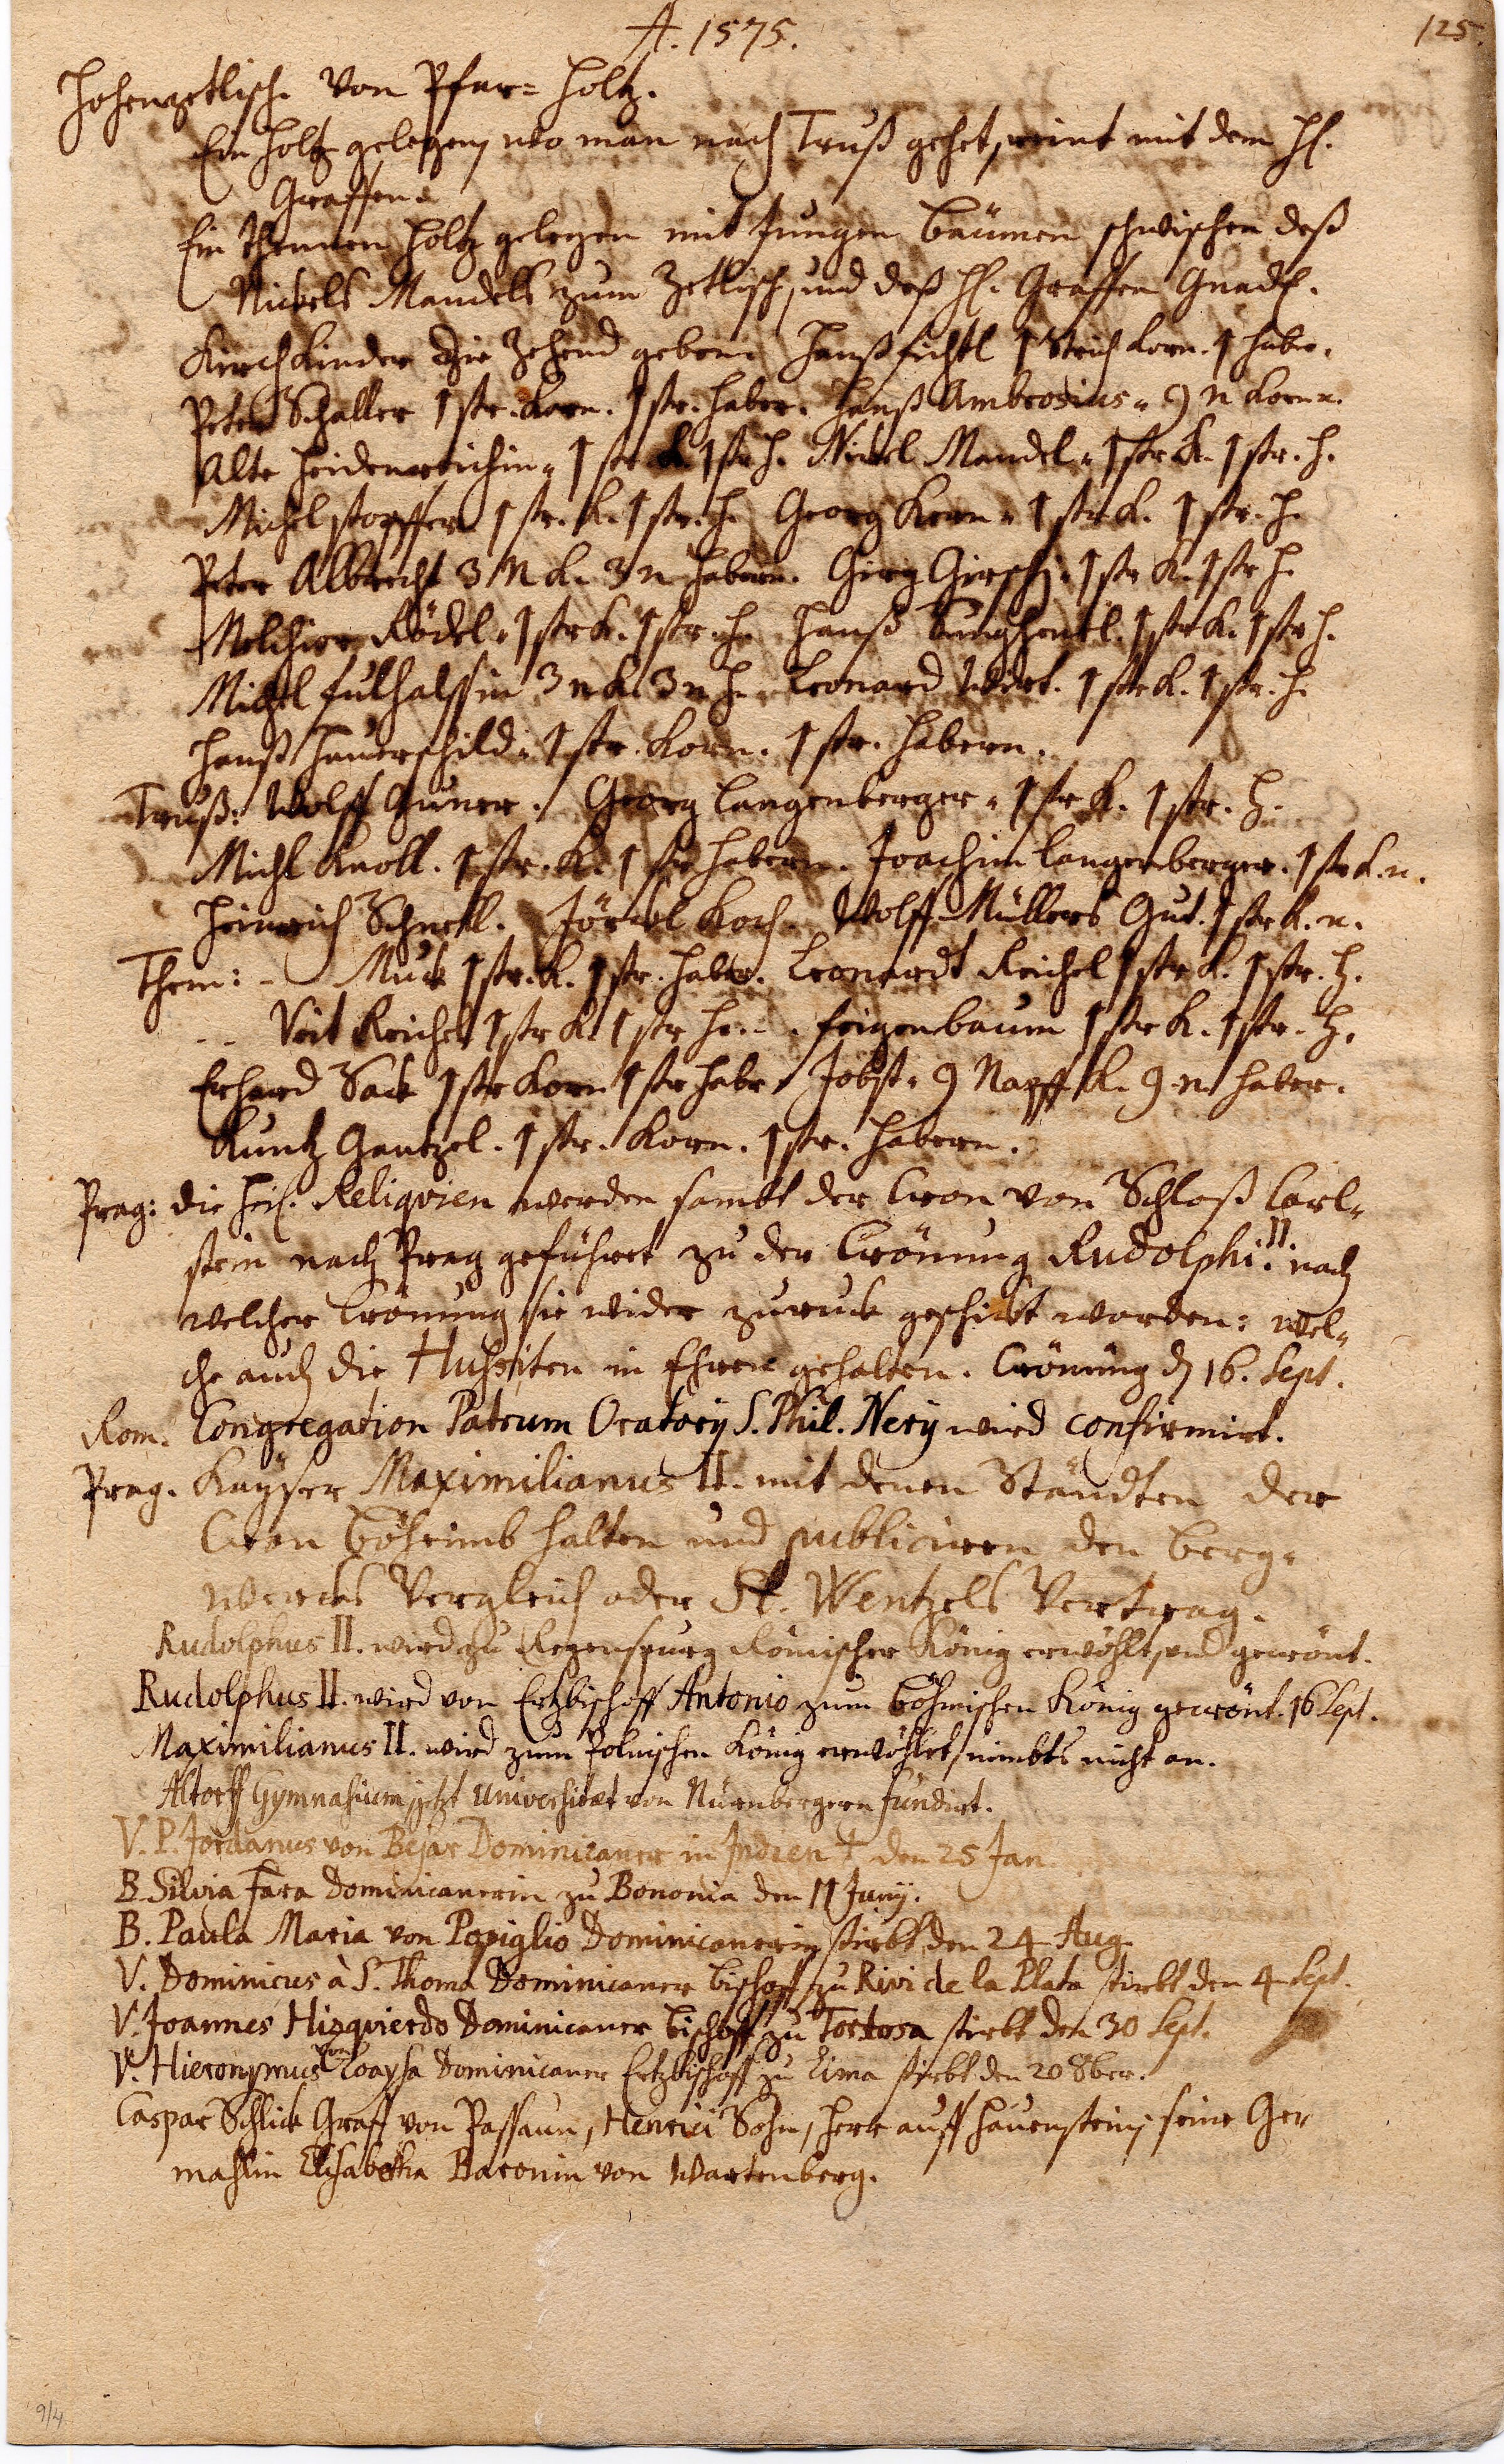 A. 1575.
125.
Hohenzetlisch. Von Pfar= Holtz.
Ein Holtz gelegen, wo man nach Truß gehet, reint mit dem H.
Graffen.
Ein Thennen Holtz gelegen mit Jungen Bäumen zchwischen deß
Nickels Mandels zum Zetlisch, und deß H. Graffen Gnad.
Kirchkinder die Zehend geben: Hanß Fichtl 1 Strich Korn. 1 Haber.
Peter Schaller 1 str. Korn. 1 str. Haber. Hanß Ambrosius. 9 n Korn.
Alte Heidenreichin. 1 str K 1 str H. Nickel Mandel. 1 str K. 1 str. H.
Michel stopffer 1 str. K. 1 str. H. Georg Kern. 1 str K. 1 str. H.
Peter Albrecht 3 N K. 3 n Habern. Girg Girschj. 1 str K. 1 str H.
Melchior Rödl. 1 str K. 1 str H. Hanß 1 str K. 1 str H.
Michel 3 n K. 3 n H. Leonard Wirt. 1 str K. 1 str. H.
Hanß Hauerschild. 1 str. Korn. 1 str. Habern.
Truß: Wolff Guner. Georg Langenberger. 1 str K. 1 str. H.
Michl Knoll. 1 str. K. 1 str Habern. Joachim Langenberger. 1 str K. n.
Heinrich Schnetl. Jörckl Koch. Wolff Müllers Gut. 1 str K. n.
Them: - Muck 1 str. K. 1 str. Haber. Leonardt Reichel 1 str K. 1 str. H.
- - Veit Reichel 1 str K 1 str H. - . Feigenbaum 1 str K. 1 str. H.
Erhard Sack 1 str Korn 1 str Habr. Jobst. 9 Napff K. 9 n Haber.
Kuntz Gantzel. 1 str. Korn. 1 str. Habern.
Prag: die Heil. Reliqvien werden sambt der Cron von Schloß Carl=
stein nach Prag geführet zu der Crönung Rudolphi II. nach
welcher Crönung sie wider zuruck geschickt worden: wel=
che auch die Hussiten in Ehren gehalten. Crönung d 16. Sept.
Rom. Congregation Patrum Oratorij S. Phil. Nerij wird confirmirt.
Prag. Kayser Maximilianus II. mit denen Ständten der
Cron Böheimb halten und publiciren den Berg=
wercks Vergleich oder St. Wentzels Vertrag.
Rudolphus II. wird zu Regenspurg Römischer König erwöhlt, und gecrönt.
Rudolphus II. wird von Ertzbischoff Antonio zum Böhmischen König gecrönt. 16 Sept.
Maximilianus II. wird zum Polnischen König erwöhlet, nimbts nicht an.
Altorff Gymnasium, jetzt Universitæt von Nürnbergern fundirt.
V. P. Jordanus von Bejar Dominicaner in Indien † den 25 Jan
B. Silvia Fara Dominicanerin zu Bononia den 11 Junij.
B. Paula Maria von Popiglio Dominicanerin stirbt den 24 Aug.
V. Dominicus à S. Thoma Dominicaner Bischoff zu Rivi de la Plata stirbt den 4 Sept.
V. Joannes Hizqvierdo Dominicaner Bischoff zu Tortosa stirbt den 30 Sept.
V. Hieronymus von Loaysa Dominicaner Ertzbischoff zu Lima stirbt den 20 8ber.
Caspar Schlick Graff von Passaun, Henrici Sohn, Herr auff Hauenstein, seine Ge=
mahlin Elisabetha Baronin von Wartenberg.
9/4